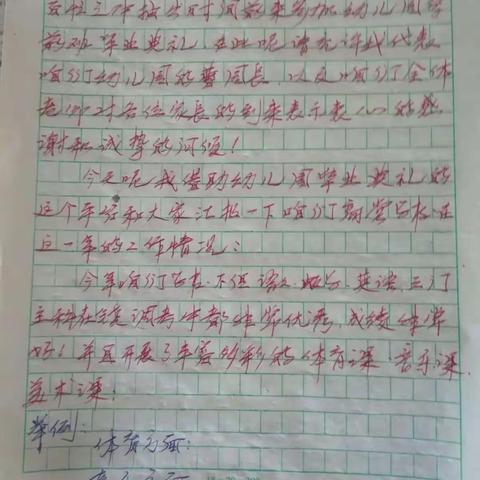 各位在百忙之中抽出时间前来参加幼儿园学
前班毕业典礼，在此呢请允许我代表
咱们幼儿园的曹园长，以及咱们全体
老师对各位家长的到来表示衷心的感
谢和诚挚的问候！
今天呢我借助幼儿园毕业典礼的
这个平台和大家汇报一下咱们学校在
这一年的工作情况：
今年咱们学校不但语文、数学、英语三门
主科在统考调考中都非常优秀，成绩非常
好！并且开展了丰富多彩的体育课、音乐课、
美术课：
举例：
体育方面：